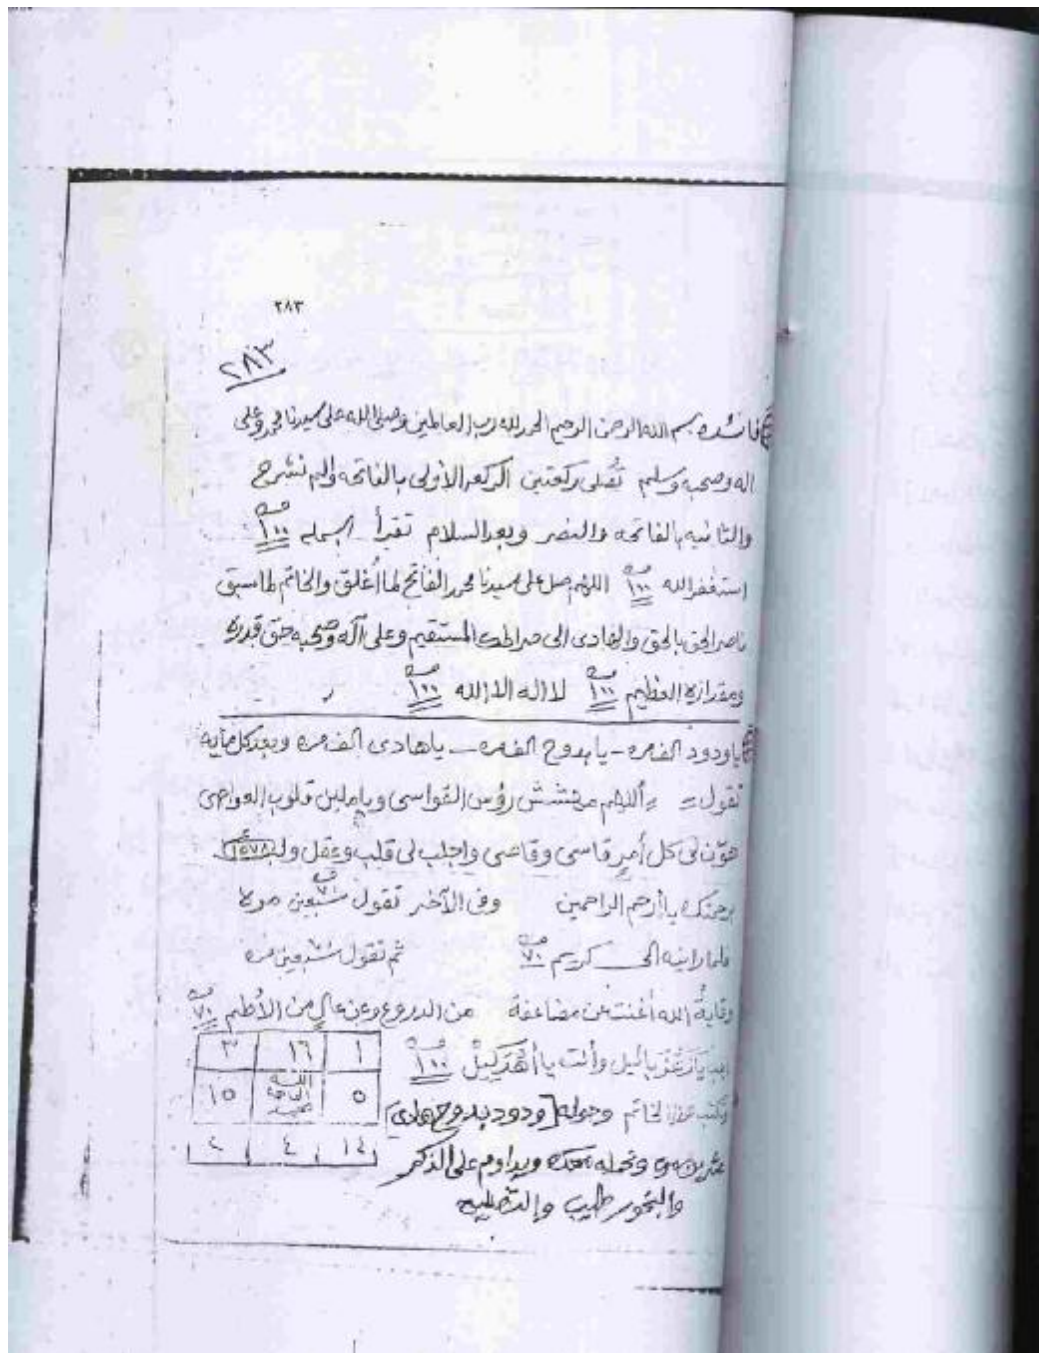 ٢٨٣
٢٨٣
فائده بسم الله الرحمن الرحيم الحمد لله رب العالمين وصلى الله على سيدنا محمد وعلى
اله وصحبه وسلم تصلى ركعتين الركعه الأولى بالفاتحه والم نشرح
والثانيه بالفاتحه والنصر وبعد السلام تقرأ البسمله ١٠٠
استغفر الله ١٠٠ اللهم صل على سيدنا محمد الفاتح لما أغلق والخاتم لما سبق
ناصر الحق بالحق والهادى الى صراطك المستقيم وعلى آله وصحبه حق قدره
ومقداره العظيم ١٠٠ لا اله الا الله ١٠٠
ياودود الف مره - يا بدوح الف مره - ياهادى الف مره وبعد كل مايه
تقول = اللهم رؤس القواسى وياملين قلوب
هوّن لى كل أمرٍ قاسى وقاصى واجلب لى قلب وعقل
برحمتك يا أرحم الراحمين وفى الآخر تقول سبعين مره
فلما رأينه الى كريم ٧٠ ثم تقول سبعين مره
وقاية الله أغنت عن مضاعفة من الدروع وعن عالٍ من الأطم ٧٠
وأنت يا ١٠٠
١ ١٦ ٣
٥ ١٥
١٤ ٤ ٢
الخاتم وحوله [ودود بدوح هادى]
وتحمله معك ويداوم على الذكر
والبخور طيب